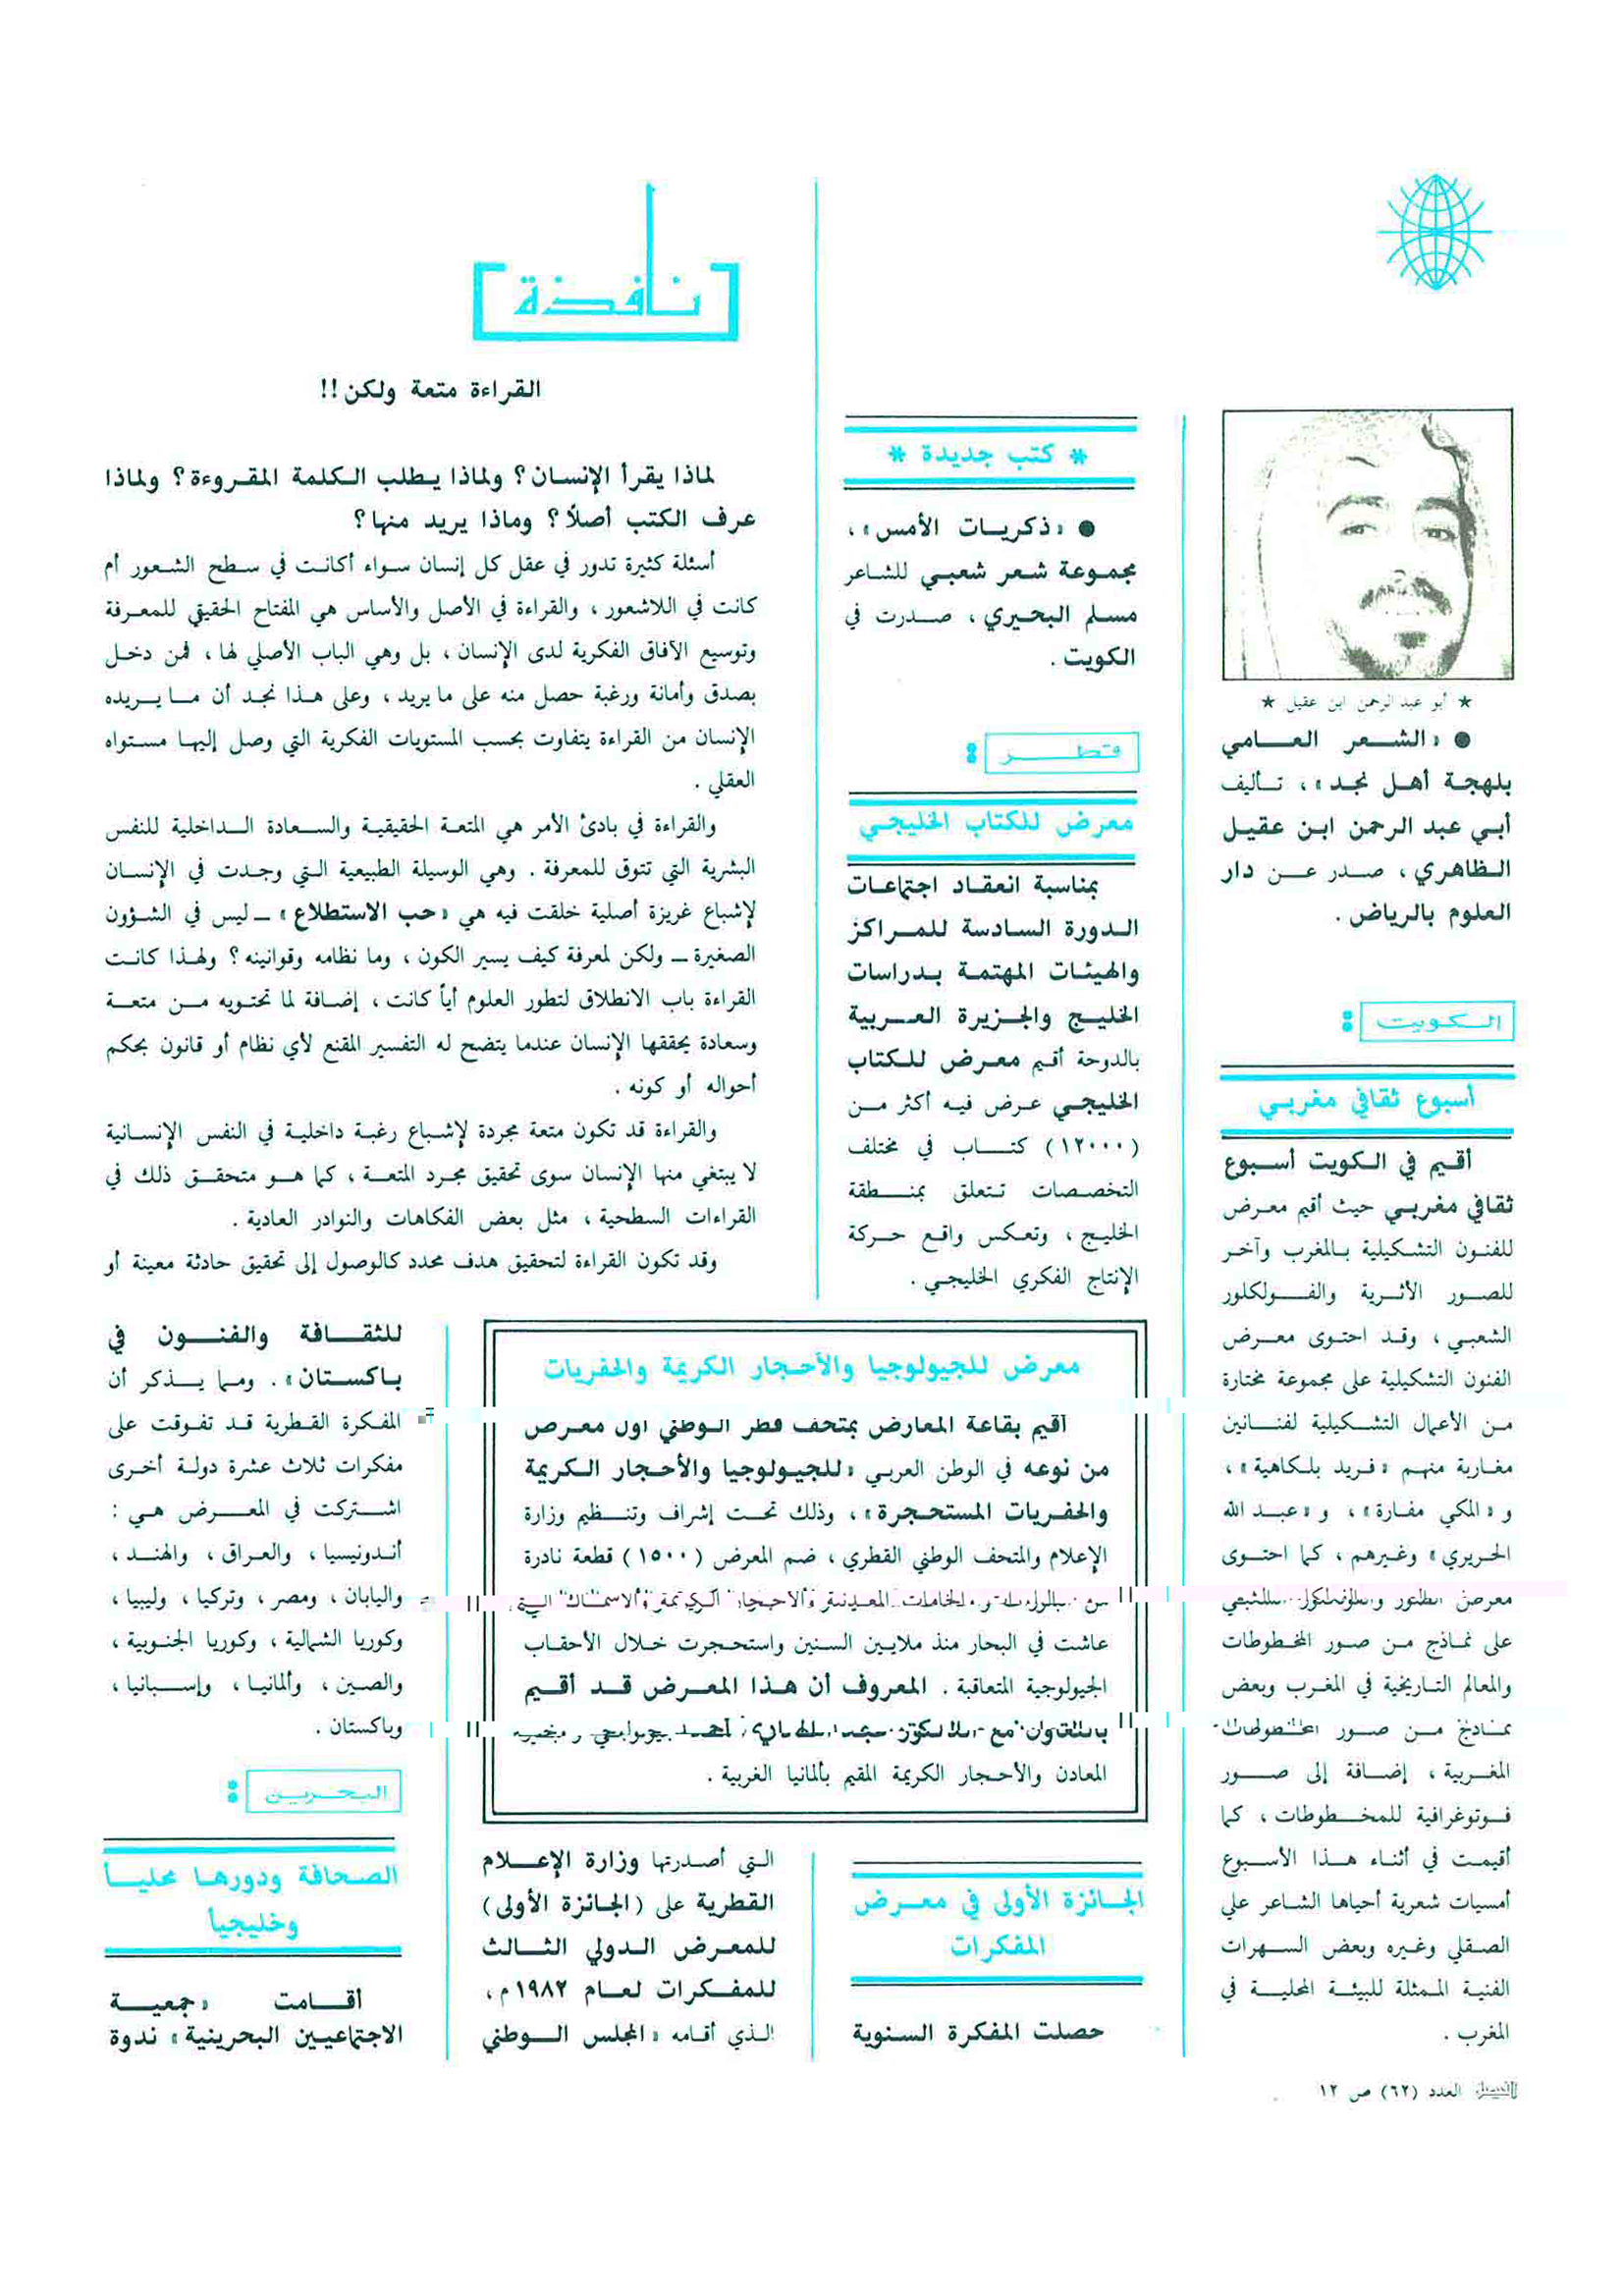 ★ أبو عبد الرحمن ابن عقيل ★
● «الشعر العامي
بلهجة أهل نجد»، تأليف
أبي عبد الرحمن ابن عقيل
الظاهري، صدر عن دار
العلوم بالرياض.
الكويت :
أسبوع ثقافي مغربي
أقيم في الكويت أسبوع
ثقافي مغربي حيث أقيم معرض
للفنون التشكيلية بالمغرب وآخر
للصور الأثرية والفولكلور
الشعبي، وقد احتوى معرض
الفنون التشكيلية على مجموعة مختارة
من الأعمال التشكيلية لفنانين
مغاربة منهم «فريد بلكاهية»،
و«المكي مغارة»، و«عبد الله
الحريري» وغيرهم، كما احتوى
معرض
على نماذج من صور المخطوطات
والمعالم التاريخية في المغرب وبعض
نماذج من صور المخطوطات
المغربية، إضافة إلى صور
فوتوغرافية للمخطوطات، كما
أقيمت في أثناء هذا الأسبوع
أمسيات شعرية أحياها الشاعر علي
الصقلي وغيره وبعض السهرات
الفنية الممثلة للبيئة المحلية في
المغرب.
* كتب جديدة *
● «ذكريات الأمس»،
مجموعة شعر شعبي للشاعر
مسلم البحيري، صدرت في
الكويت.
قطر :
معرض للكتاب الخليجي
بمناسبة انعقاد اجتماعات
الدورة السادسة للمراكز
والهيئات المهتمة بدراسات
الخليج والجزيرة العربية
بالدوحة أقيم معرض للكتاب
الخليجي عرض فيه أكثر من
(١٢٠٠٠) كتاب في مختلف
التخصصات تتعلق بمنطقة
الخليج، وتعكس واقع حركة
الإنتاج الفكري الخليجي.
معرض للجيولوجيا والأحجار الكريمة والحفريات
أقيم بقاعة المعارض بمتحف قطر الوطني أول معرض
من نوعه في الوطن العربي «للجيولوجيا والأحجار الكريمة
والحفريات المستحجرة»، وذلك تحت إشراف وتنظيم وزارة
الإعلام والمتحف الوطني القطري، ضم المعرض (١٥٠٠) قطعة نادرة
من والخامات المعدنية والأحجار الكريمة والأسماك التي
عاشت في البحار منذ ملايين السنين واستحجرت خلال الأحقاب
الجيولوجية المتعاقبة. المعروف أن هذا المعرض قد أقيم
بالتعاون مع الدكتور
المعادن والأحجار الكريمة المقيم بألمانيا الغربية.
الجائزة الأولى في معرض
المفكرات
حصلت المفكرة السنوية
التي أصدرتها وزارة الإعلام
القطرية على (الجائزة الأولى)
للمعرض الدولي الثالث
للمفكرات لعام ١٩٨٢م،
الذي أقامه «المجلس الوطني
للثقافة والفنون في
باكستان». ومما يذكر أن
المفكرة القطرية قد تفوقت على
مفكرات ثلاث عشرة دولة أخرى
اشتركت في المعرض هي :
أندونيسيا، والعراق، والهند،
واليابان، ومصر، وتركيا، وليبيا،
وكوريا الشمالية، وكوريا الجنوبية،
والصين، وألمانيا، وإسبانيا،
وباكستان.
البحرين :
الصحافة ودورها محلياً
وخليجياً
أقامت «جمعية
الاجتماعيين البحرينية» ندوة
نافذة
القراءة متعة ولكن!!
لماذا يقرأ الإنسان؟ ولماذا يطلب الكلمة المقروءة؟ ولماذا
عرف الكتب أصلاً؟ وماذا يريد منها؟
أسئلة كثيرة تدور في عقل كل إنسان سواء أكانت في سطح الشعور أم
كانت في اللاشعور، والقراءة في الأصل والأساس هي المفتاح الحقيقي للمعرفة
وتوسيع الآفاق الفكرية لدى الإنسان، بل وهي الباب الأصلي لها، فمن دخل
بصدق وأمانة ورغبة حصل منه على ما يريد، وعلى هذا نجد أن ما يريده
الإنسان من القراءة يتفاوت بحسب المستويات الفكرية التي وصل إليها مستواه
العقلي.
والقراءة في بادئ الأمر هي المتعة الحقيقية والسعادة الداخلية للنفس
البشرية التي تتوق للمعرفة. وهي الوسيلة الطبيعية التي وجدت في الإنسان
لإشباع غريزة أصلية خلقت فيه هي «حب الاستطلاع» ــ ليس في الشؤون
الصغيرة ــ ولكن لمعرفة كيف يسير الكون، وما نظامه وقوانينه؟ ولهذا كانت
القراءة باب الانطلاق لتطور العلوم أياً كانت، إضافة لما تحتويه من متعة
وسعادة يحققها الإنسان عندما يتضح له التفسير المقنع لأي نظام أو قانون بحكم
أحواله أو كونه.
والقراءة قد تكون متعة مجردة لإشباع رغبة داخلية في النفس الإنسانية
لا يبتغي منها الإنسان سوى تحقيق مجرد المتعة، كما هو متحقق ذلك في
القراءات السطحية، مثل بعض الفكاهات والنوادر العادية.
وقد تكون القراءة لتحقيق هدف محدد كالوصول إلى تحقيق حادثة معينة أو
الفيصل العدد (٦٢) ص ١٢